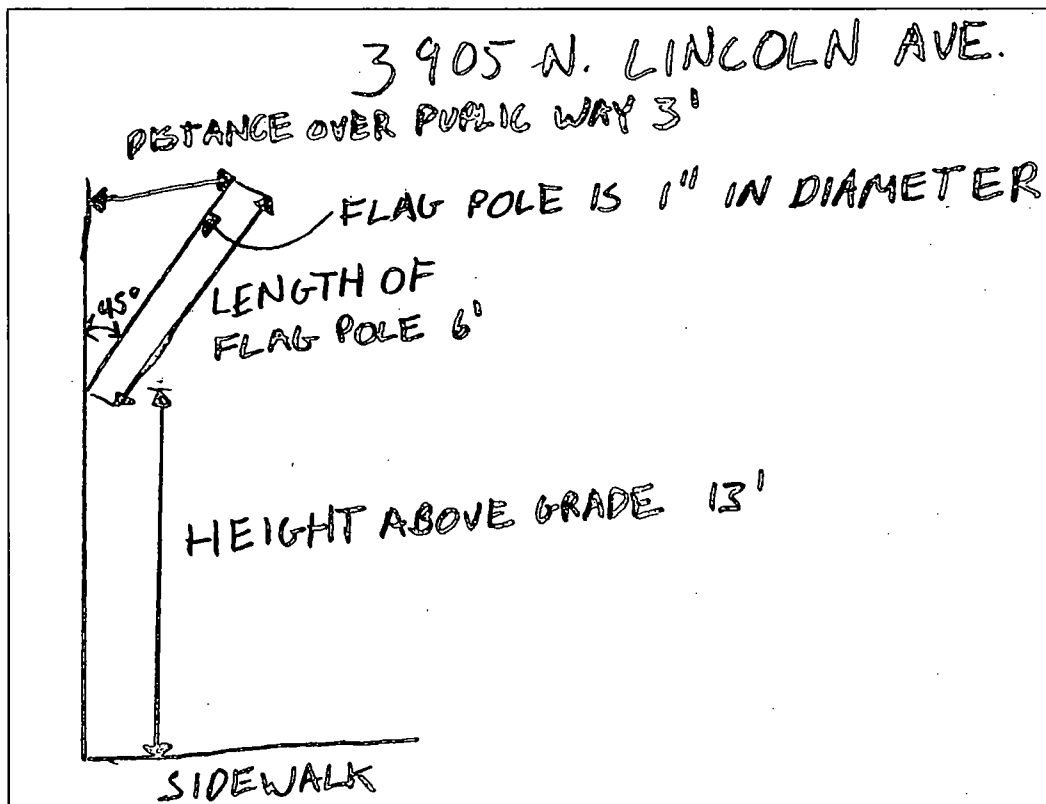 3905 N. LINCOLN AVE.
DISTANCE OVER PUBLIC WAY 3'
FLAG POLE IS 1" IN DIAMETER
45°
LENGTH OF
FLAG POLE 6'
HEIGHT ABOVE GRADE 13'
SIDEWALK